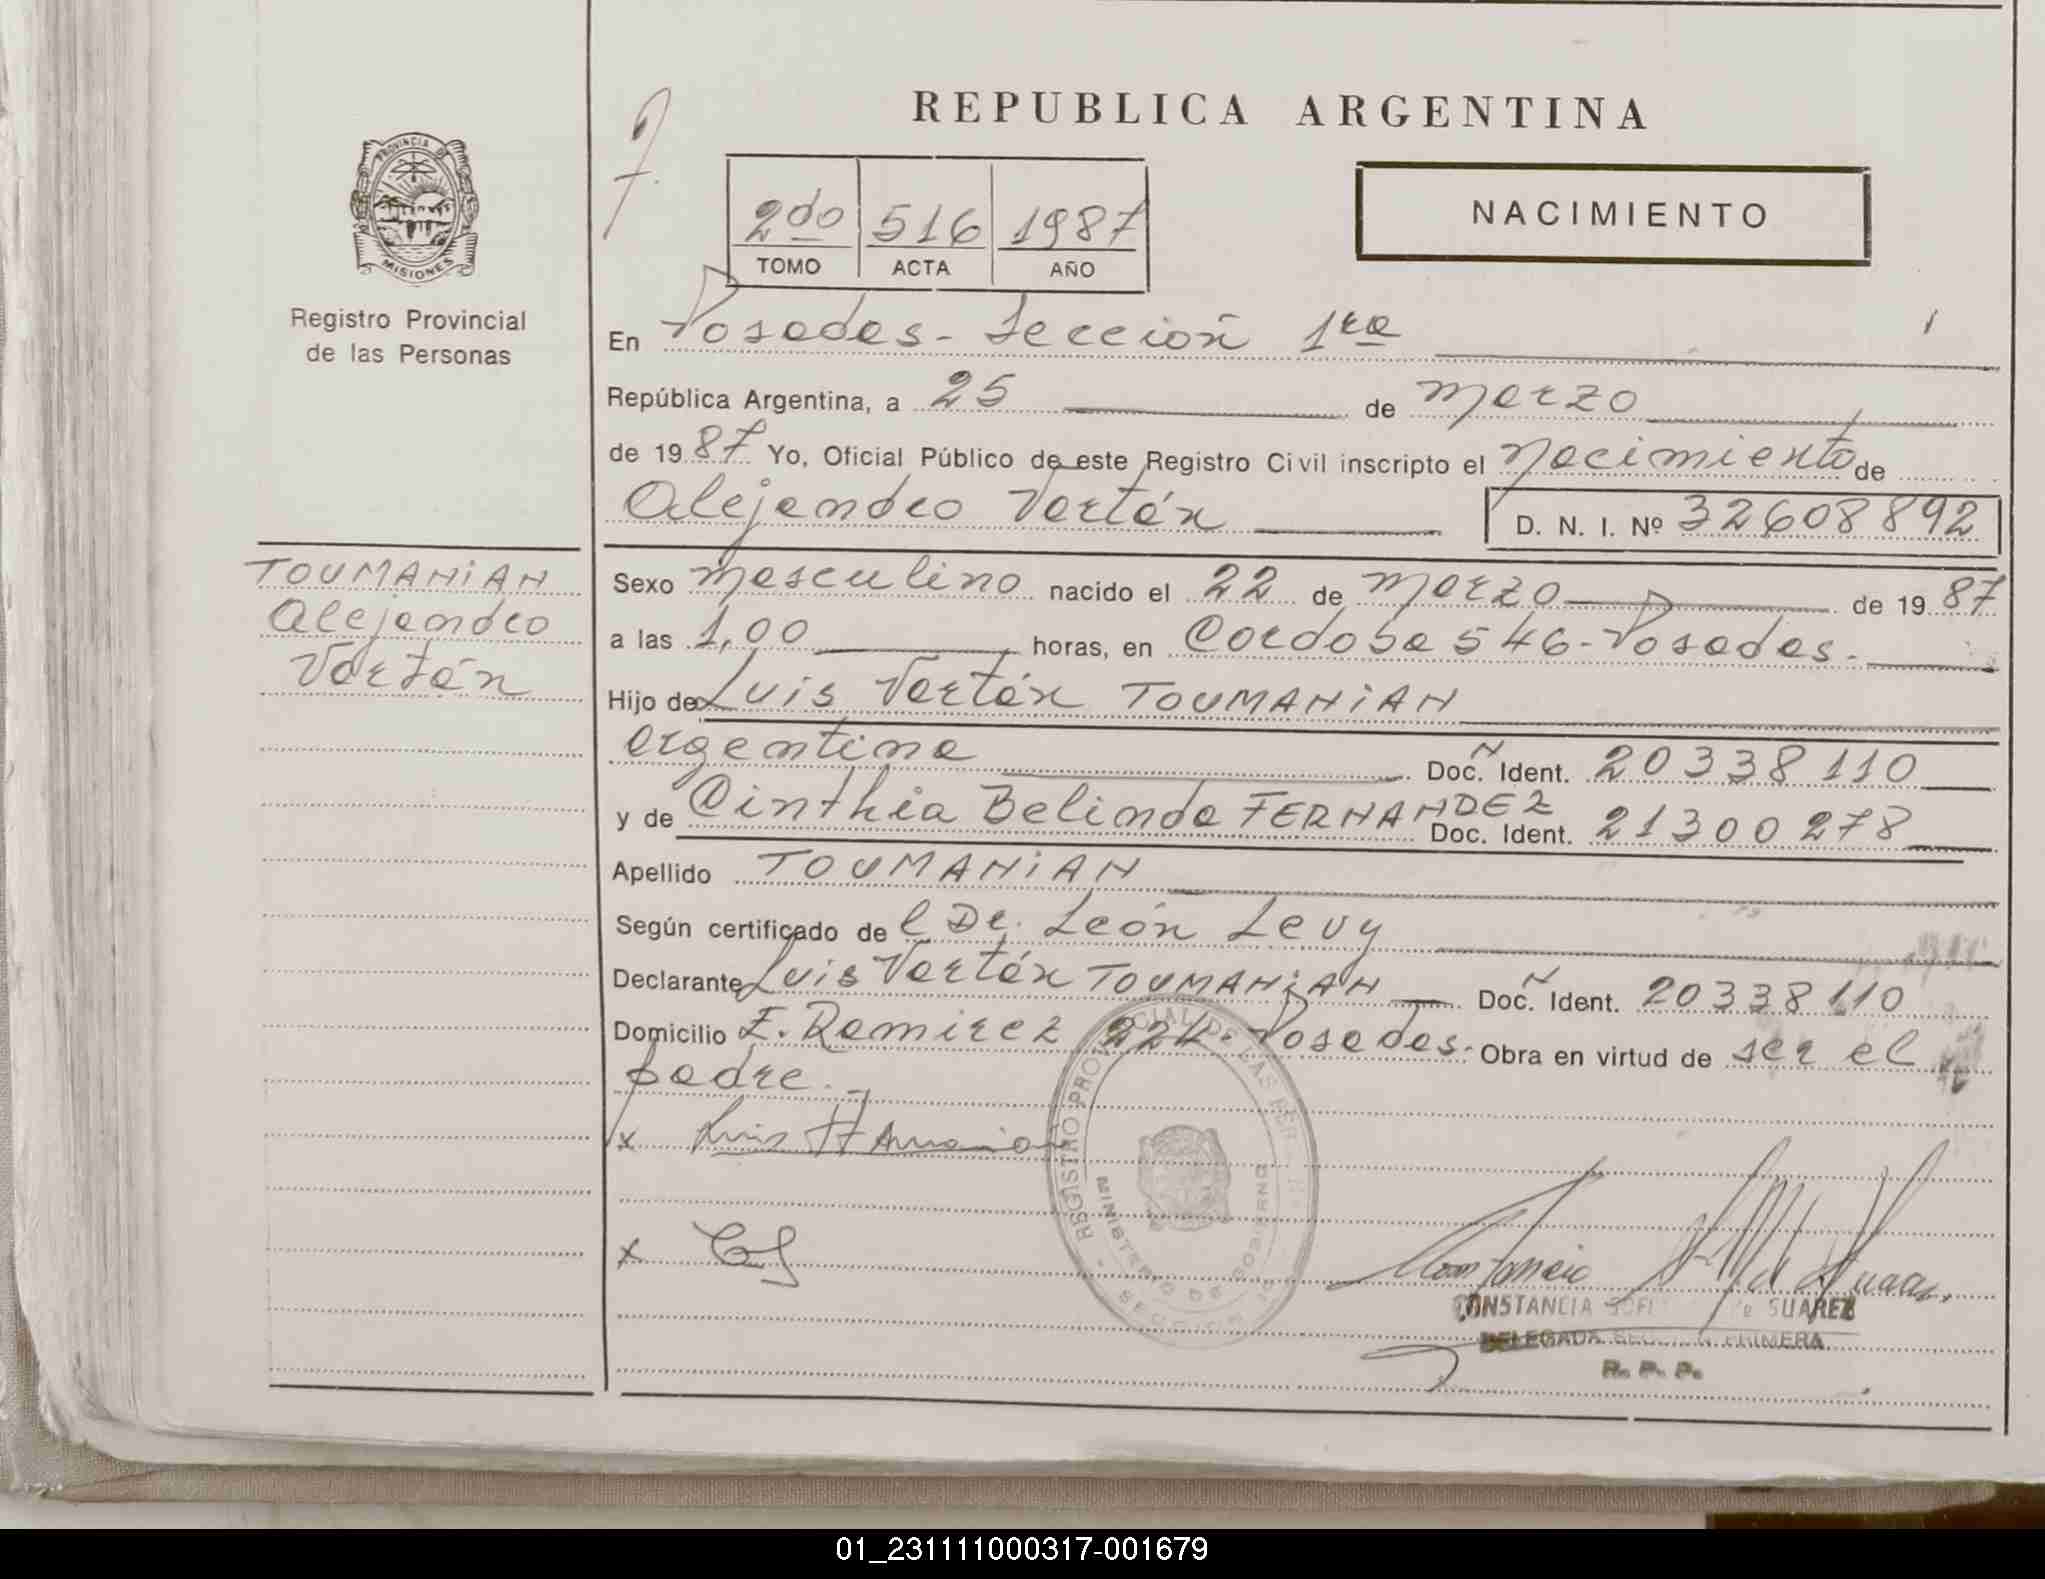 REPUBLICA ARGENTINA
PROVINCIA DE
MISIONES
Registro Provincial
de las Personas
2do 516 1987
TOMO ACTA AÑO
NACIMIENTO
En Posadas - Sección 1ra
República Argentina, a 25 de Marzo
de 1987 Yo, Oficial Público de este Registro Civil inscripto el Nacimiento de
Alejandro Vartán D. N. I. Nº 32608892
TOUMANiAN
Alejandro
Vartán
Sexo masculino nacido el 22 de Marzo de 1987
a las 1,00 horas, en Córdoba 546 - Posadas.
Hijo de Luis Vartán TOUMANiAN
argentina Doc. Ident. 20338110
y de Cinthia Belinda FERNANDEZ Doc. Ident. 21300278
Apellido TOUMANiAN
Según certificado de l Dr. León Levy
Declarante Luis Vartán TOUMANiAN Doc. Ident. 20338110
Domicilio F. Ramirez 224 - Posadas. Obra en virtud de ser el
padre.
x Luis
x
REGISTRO PROVINCIAL DE LAS PER
MINISTERIO DE GOBIERNO
SECCION
CONSTANCIA SUAREZ
DELEGADA PRIMERA
R. P. P.
01_231111000317-001679